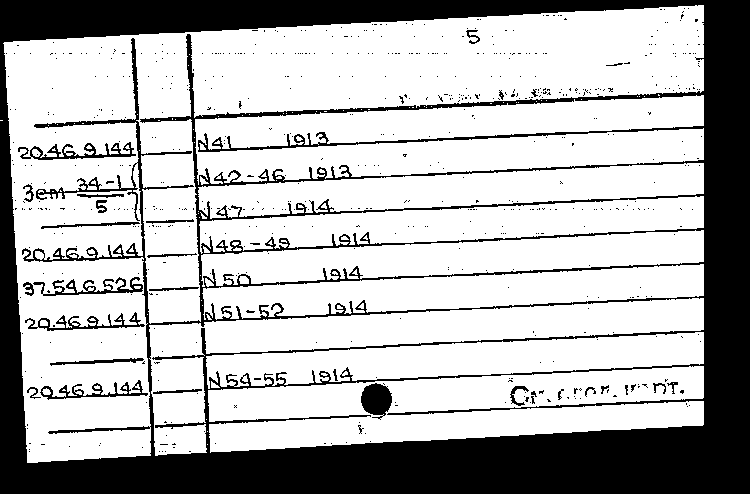 5
20.46.9.144 N41 1913
Зем 34-1/5 N42-46 1913
N47 1914
20.46.9.144 N48-49 1914
37.54.6.526 N50 1914
20.46.9.144 N51-52 1914
20.46.9.144 N54-55 1914
См.